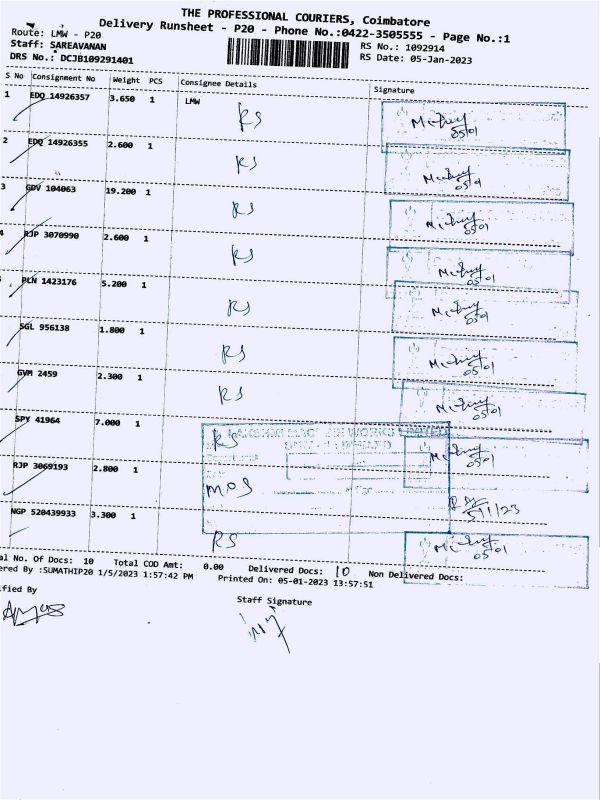 THE PROFESSIONAL COURIERS, Coimbatore
Delivery Runsheet - P20 - Phone No.:0422-3505555 - Page No.:1
Route: LMW - P20
Staff: SAREAVANAN
DRS No.: DCJB109291401
RS No.: 1092914
RS Date: 05-Jan-2023
S No Consignment No Weight PCS Consignee Details Signature
1 EDQ 14926357 3.650 1 LMW RS 05/01
2 EDQ 14926355 2.600 1 RS
3 GDV 104063 19.200 1 RS 05/01
RJP 3070990 2.600 1 RS 05/01
PLN 1423176 5.200 1 RS 05/01
SGL 956138 1.800 1 RS 05/01
GVM 2459 2.300 1 RS 05/01
SPY 41964 7.000 1 RS 05/01
RJP 3069193 2.800 1 MOS 5/1/23
NGP 520439933 3.300 1 RS 05/01
al No. Of Docs: 10 Total COD Amt: 0.00 Delivered Docs: 10 Non Delivered Docs:
ered By :SUMATHIP20 1/5/2023 1:57:42 PM Printed On: 05-01-2023 13:57:51
ified By
Staff Signature